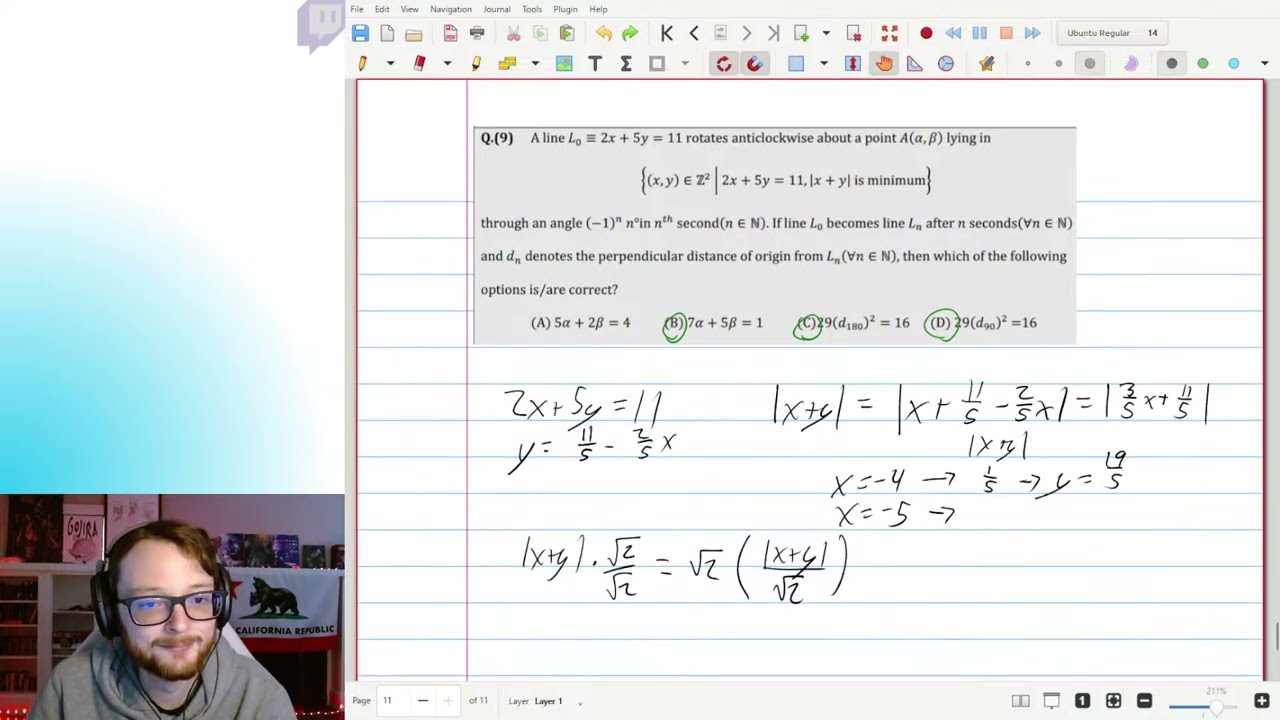 File Edit View Navigation Journal Tools Plugin Help
Ubuntu Regular 14
Q.(9) A line L₀ ≡ 2x + 5y = 11 rotates anticlockwise about a point A(α, β) lying in
{(x, y) ∈ ℤ² | 2x + 5y = 11, |x + y| is minimum}
through an angle (−1)ⁿ n°in nᵗʰ second(n ∈ ℕ). If line L₀ becomes line Lₙ after n seconds(∀n ∈ ℕ)
and dₙ denotes the perpendicular distance of origin from Lₙ(∀n ∈ ℕ), then which of the following
options is/are correct?
(A) 5α + 2β = 4 (B) 7α + 5β = 1 (C) 29(d₁₈₀)² = 16 (D) 29(d₉₀)² =16
2x+5y=11 |x+y| = |x + 11/5 − 2/5x| = |3/5 x + 11/5|
y = 11/5 − 2/5 x |x+y|
x=-4 → 1/5 → y = 19/5
x=-5 →
|x+y| · √2/√2 = √2 (|x+y|/√2)
GOJIRA
CALIFORNIA REPUBLIC
Page 11 of 11 Layer Layer 1 1 211%